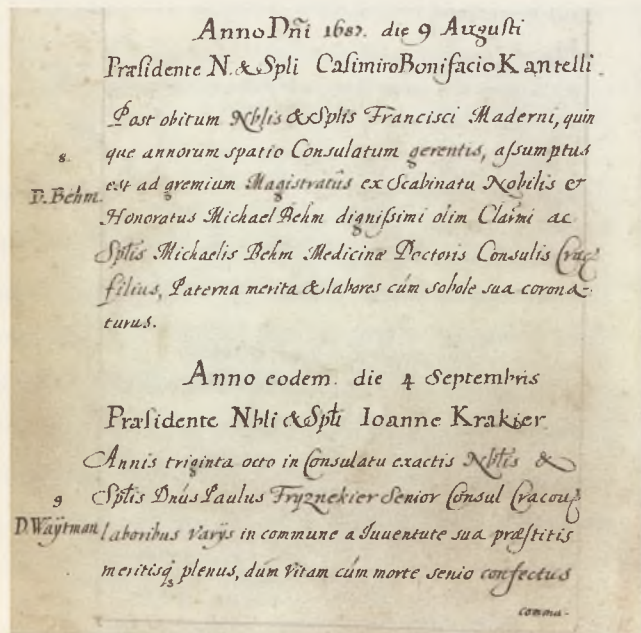 Anno Dñi 1687. die 9 Augusti
Præsidente N. & Spli Casimiro Bonifacio Kantelli
Post obitum Nblis & Splis Francisci Maderni, quin
que annorum spatio Consulatum gerentis, assumptus
8.
est ad gremium Magistratûs ex Scabinatu Nobilis &
D. Behm.
Honoratus Michael Behm dignissimi olim Clarmi ac
Sptis Michaelis Behm Medicinæ Doctoris Consulis Crac
filius, Paterna merita & labores cúm sobole sua corona-
turus.
Anno eodem. die 4 Septembris
Præsidente Nbli & Spti Ioanne Krakier
Annis triginta octo in Consulatu exactis Nbtis &
9
Sptis Dnús Paulus Fryznekier Senior Consul Cracou
D. Waÿtman
laboribus varÿs in commune a Iuuentute sua præstitis
meritisq plenus, dúm vitam cúm morte senio confectus
comma-